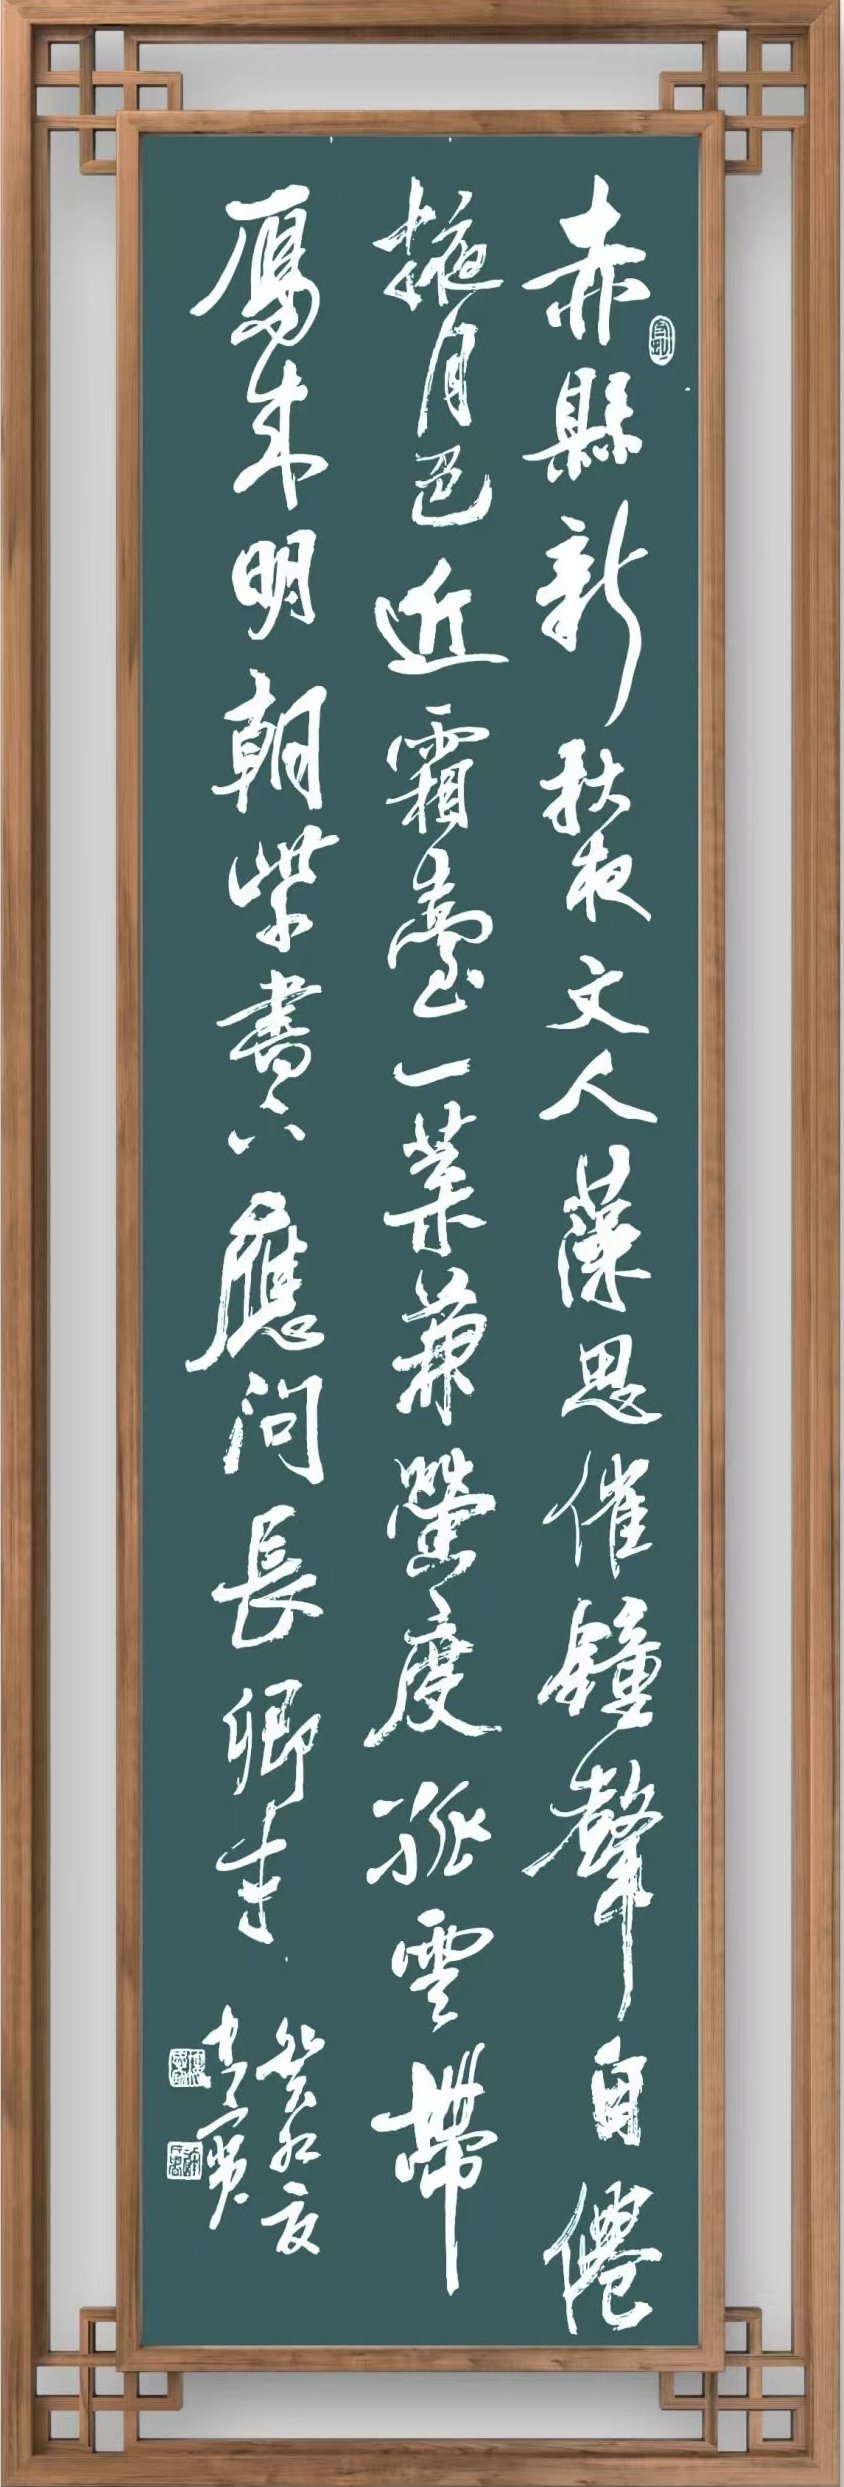 赤縣新秋夜文人藻思催鐘聲自僊
掖月色近霜臺一葉兼螢度孤雲帶
鴈来明朝紫書下應问長卿才
癸卯夏